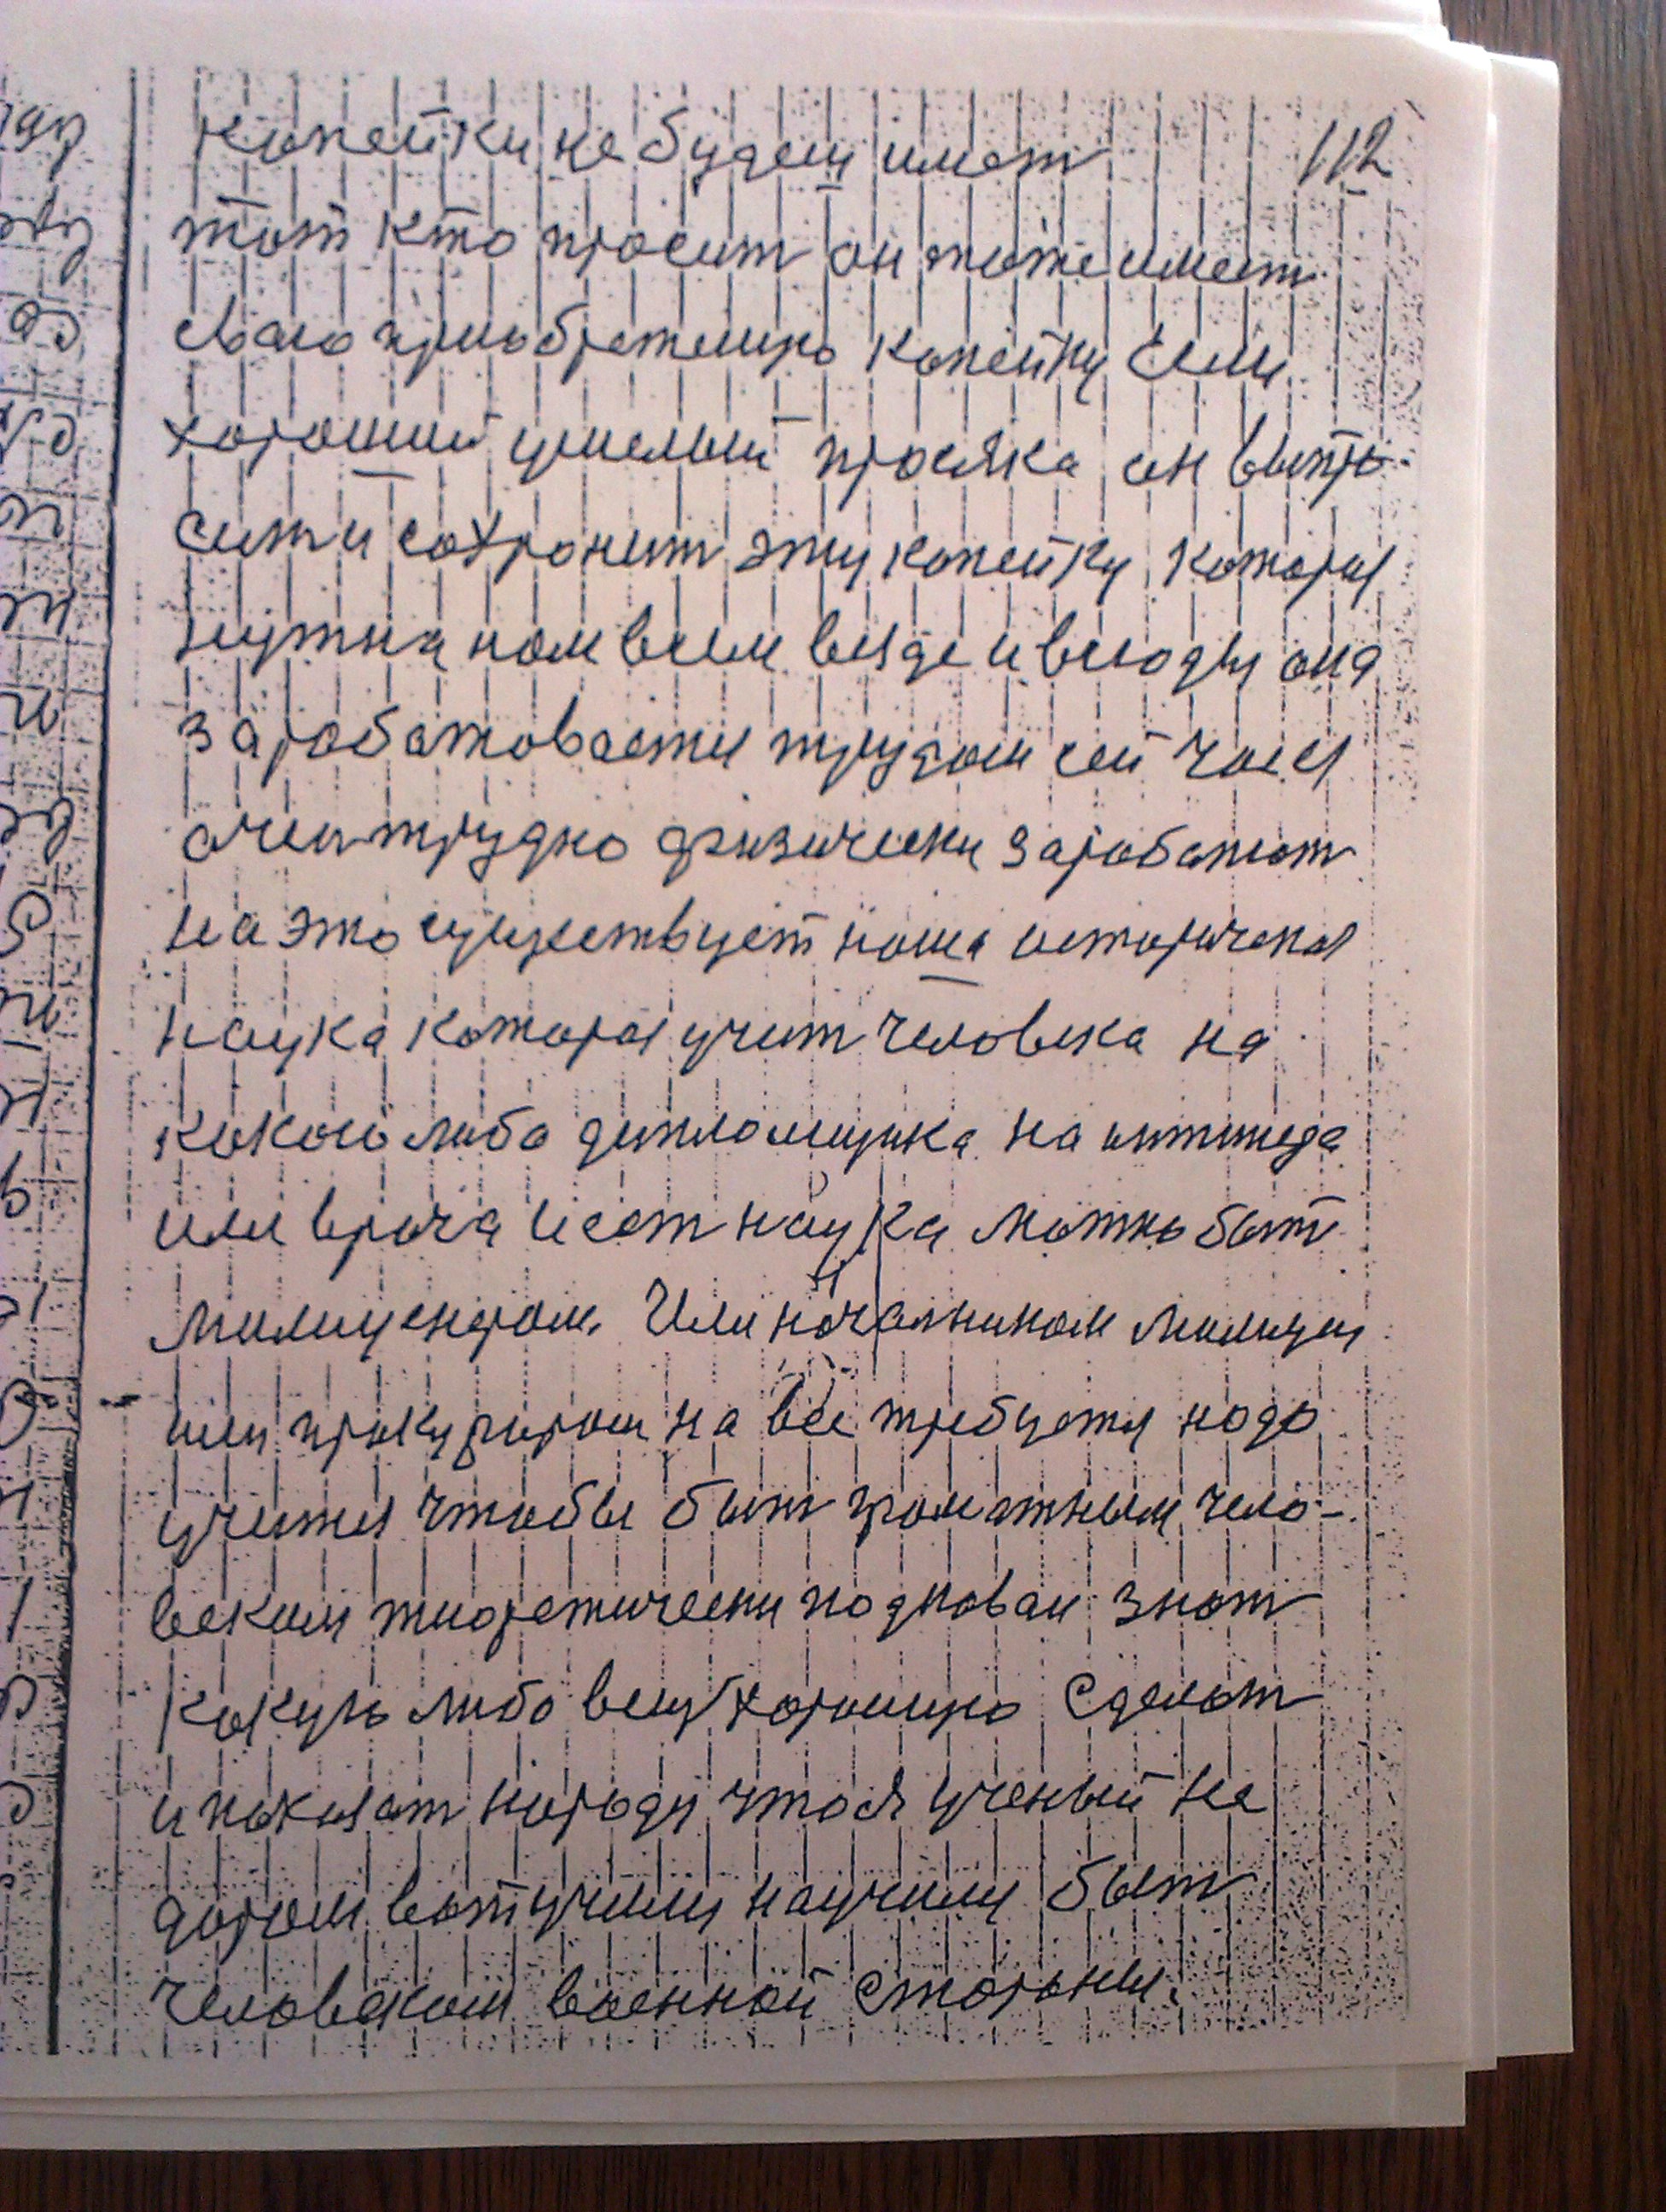 копейки не будеш имет 112
тот кто просит он може имет
своею приобретеную копейку Если
хороший умелый просяка он выпро-
сит и сохронит эту копейку которая
нужна ном всем везде и всюды она
заробатовается трудом сей часся
очен трудно физически заробатот
на это существует ноша историческая
наука которая учит человека на
кокого либо дипломщика на инжинеда
или врача И ест наука можно быт
милиценером. Или начальником милиции
или прокурором на все требуется нодо
учится чтобы быт громатным чело-
веком тиоретически подкован знот
кокую либо вещ хорошую сделот
и показат нороду что я ученый не
даром вот учили научили быт
человеком военной стороны.